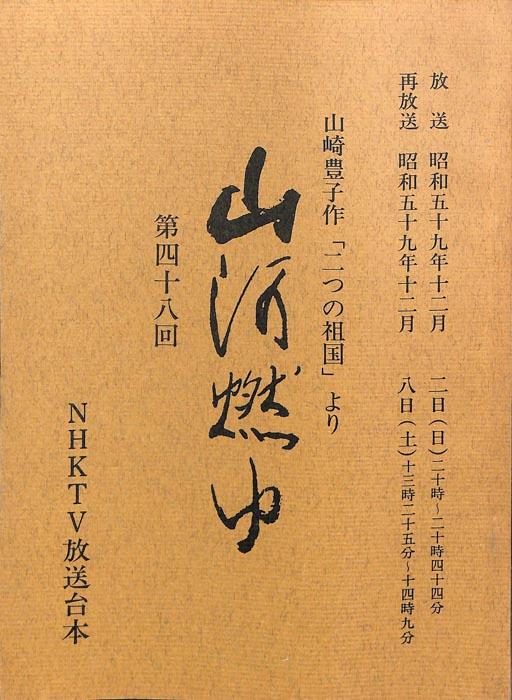 放送 昭和五十九年十二月 二日(日)二十時~二十時四十四分
再放送 昭和五十九年十二月 八日(土)十三時二十五分~十四時九分
山崎豊子作「二つの祖国」より
山河燃ゆ
第四十八回
NHKTV放送台本